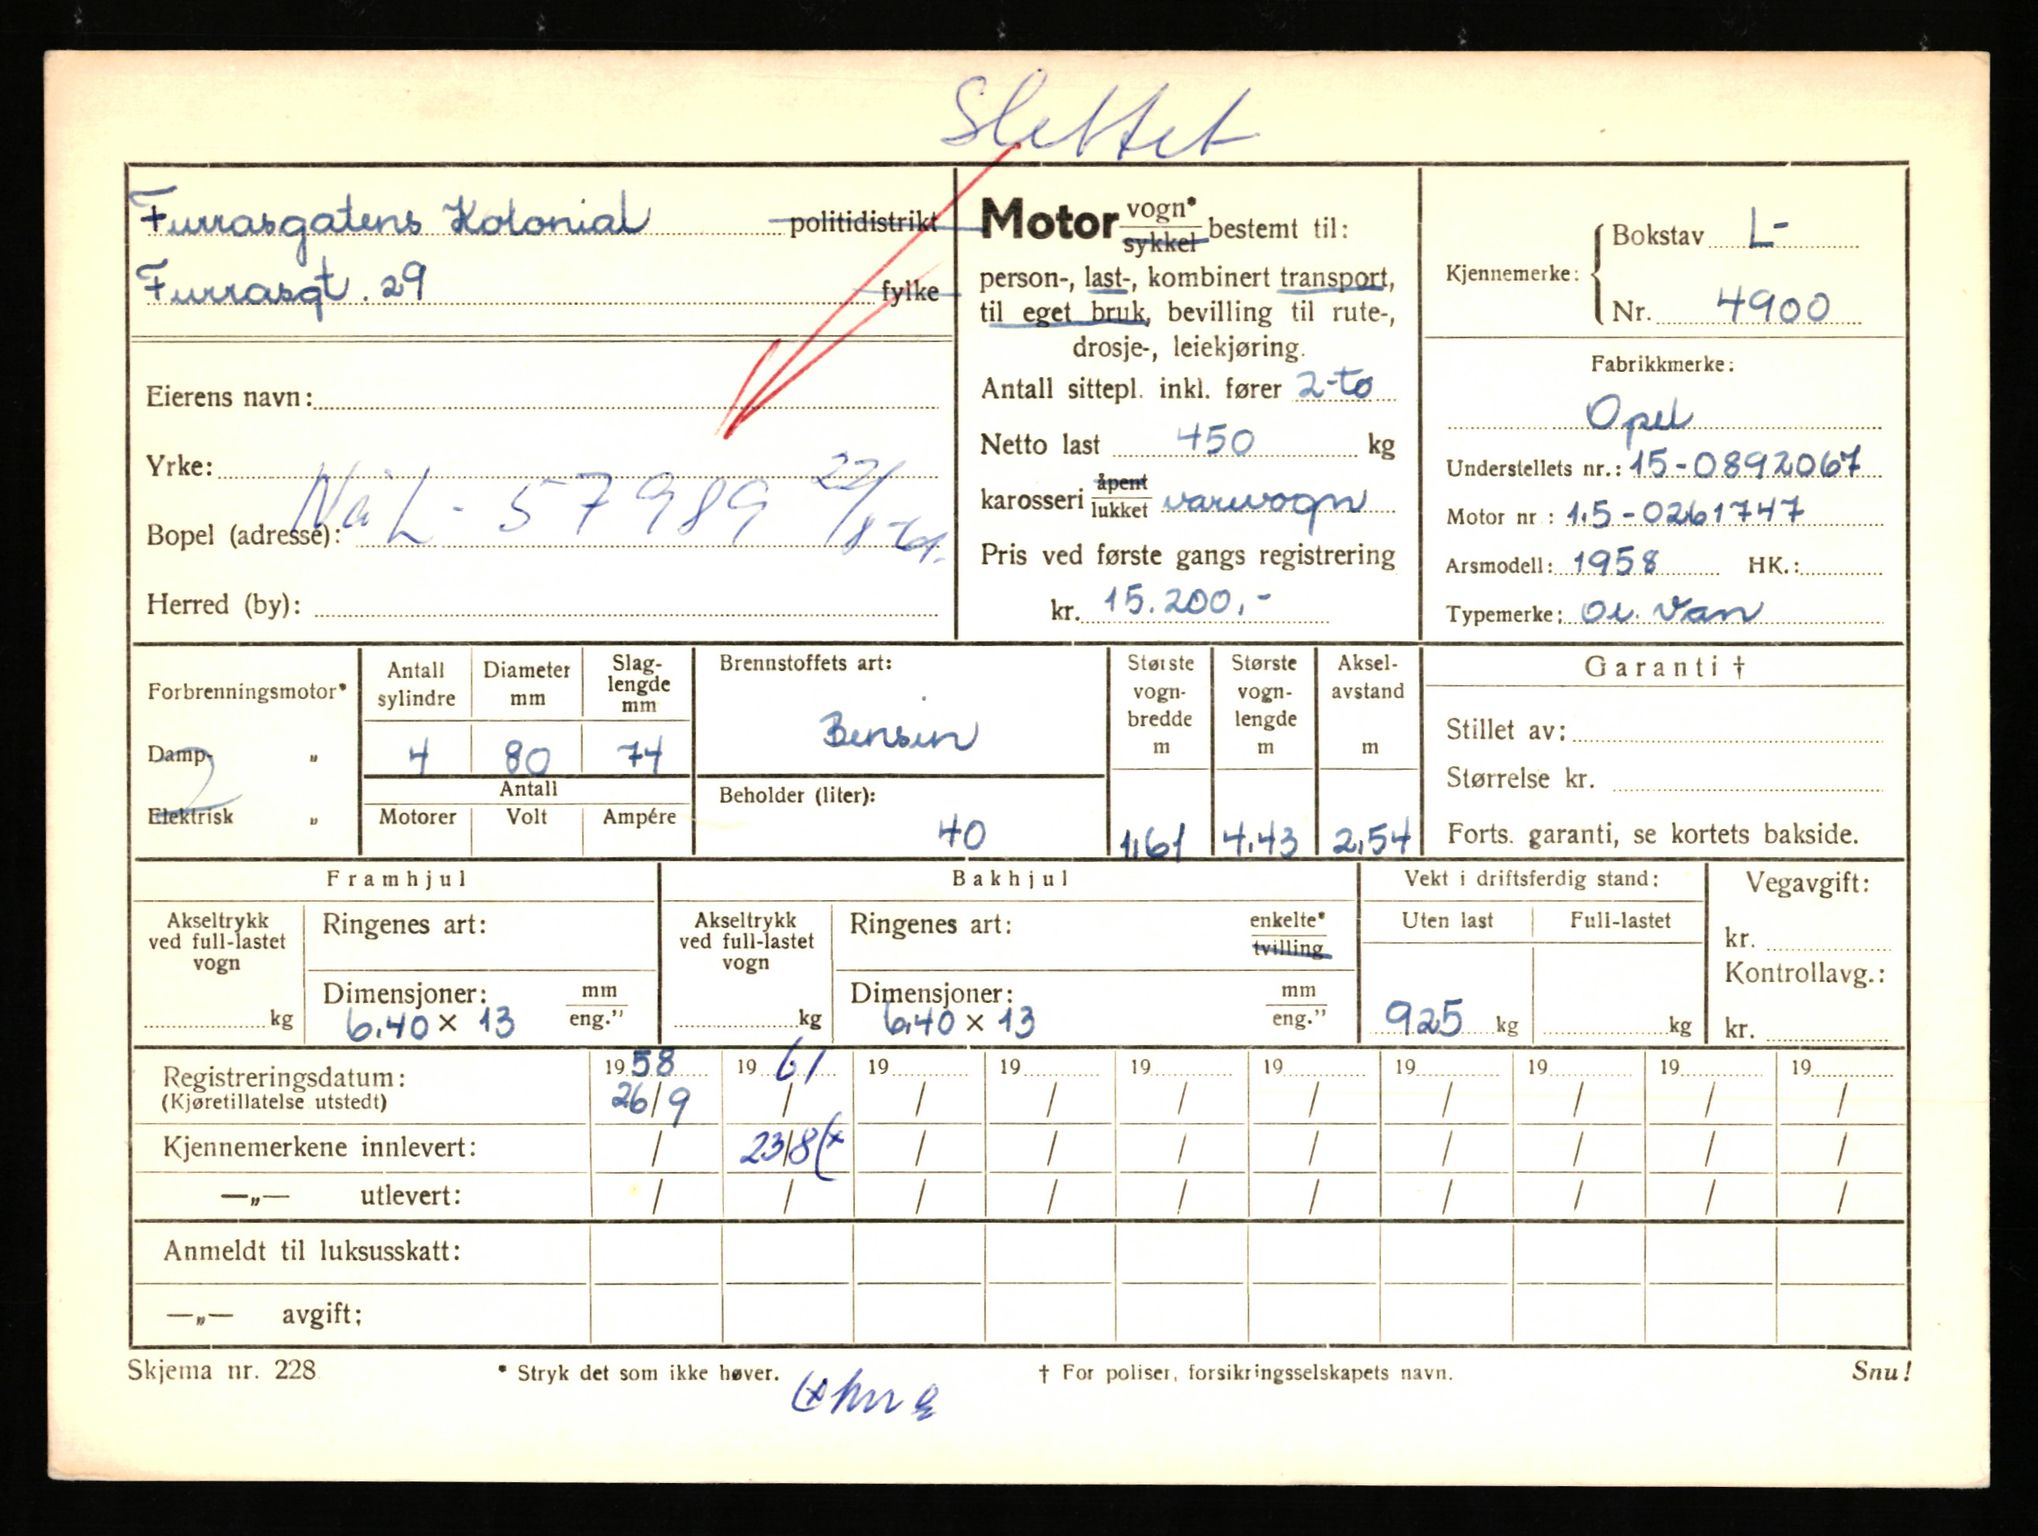 Slettet
Furrasgatens Kolonial politidistrikt
Furrasgt. 29 fylke
Eierens navn:
Yrke:
Nå L - 57989 22/8-61.
Bopel (adresse):
Herred (by):
Motor vogn* sykkel bestemt til:
person-, last-, kombinert transport,
til eget bruk, bevilling til rute-,
drosje-, leiekjøring.
Antall sittepl. inkl. fører 2-to
Netto last 450 kg
karosseri åpent lukket varevogn
Pris ved første gangs registrering
kr. 15.200,-
Kjennemerke: Bokstav L-
Nr. 4900
Fabrikkmerke:
Opel
Understellets nr.: 15-0892067
Motor nr : 1.5-0261747
Arsmodell: 1958 HK.:
Typemerke: O.l. Van
Forbrenningsmotor*
Damp- „
2
Elektrisk „
Antall sylindre Diameter mm Slag-lengde mm
4 80 74
Antall
Motorer Volt Ampére
Brennstoffets art:
Bensin
Beholder (liter):
40
Største vogn-bredde m
1,61
Største vogn-lengde m
4,43
Aksel-avstand m
2,54
Garanti †
Stillet av:
Størrelse kr.
Forts. garanti, se kortets bakside.
Framhjul
Akseltrykk ved full-lastet vogn
kg
Ringenes art:
Dimensjoner: mm eng."
6.40 × 13
Bakhjul
Akseltrykk ved full-lastet vogn
kg
Ringenes art: enkelte* tvilling
Dimensjoner: mm eng."
6.40 × 13
Vekt i driftsferdig stand:
Uten last Full-lastet
925 kg kg
Vegavgift:
kr.
Kontrollavg.:
kr.
19 58 19 61 19 19 19 19 19 19 19 19
Registreringsdatum:
(Kjøretillatelse utstedt) 26/9 / / / / / / / / /
Kjennemerkene innlevert: / 23/8 (x / / / / / / / /
—„— utlevert: / / / / / / / / / /
Anmeldt til luksusskatt:
—„— avgift;
Skjema nr. 228 * Stryk det som ikke høver. † For poliser, forsikringsselskapets navn. Snu!